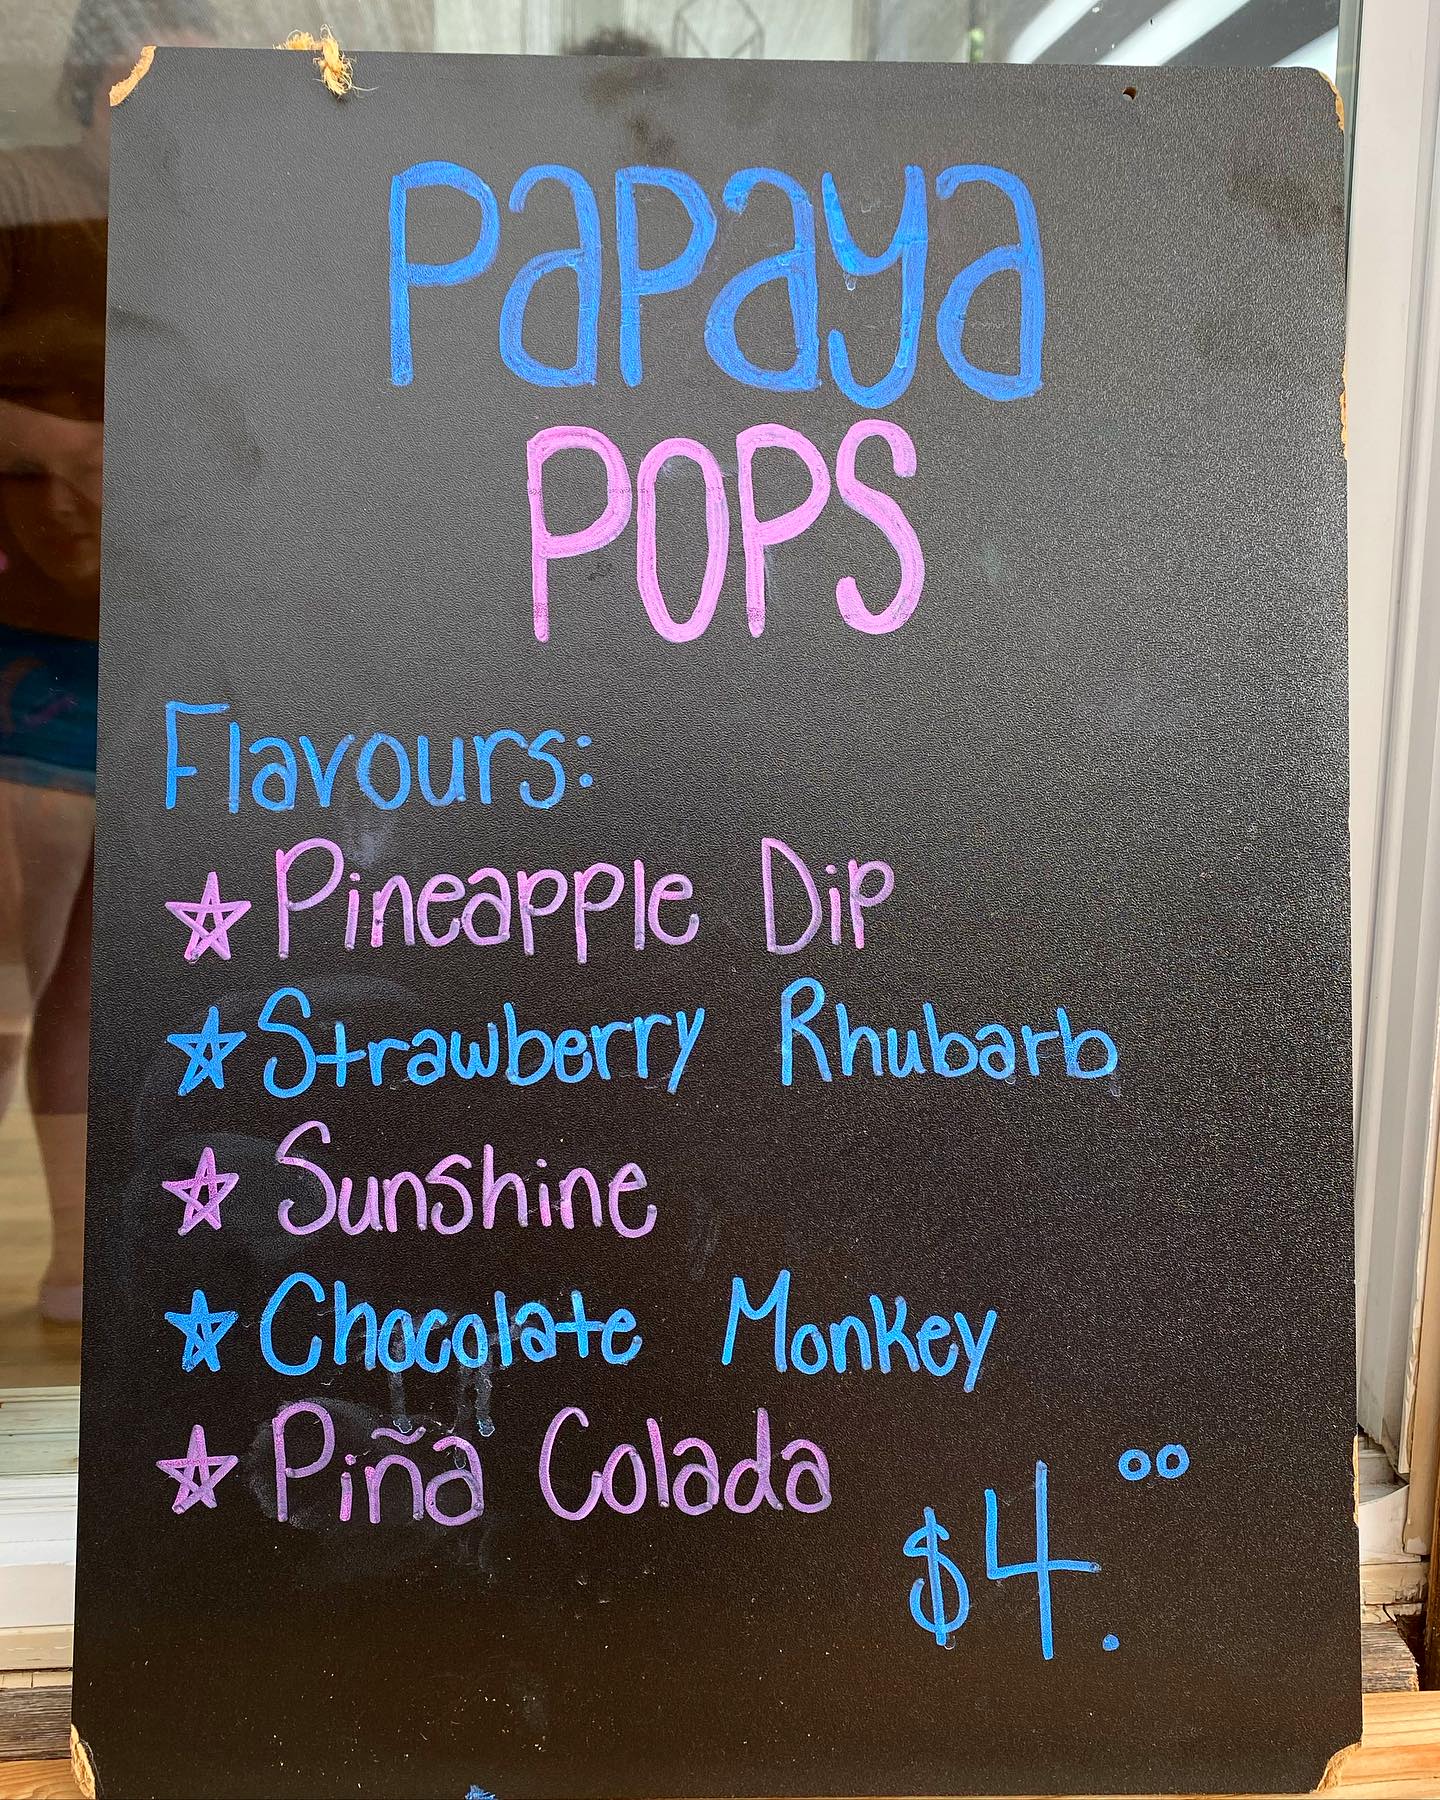 Papaya
POPS
Flavours:
☆ Pineapple Dip
☆ Strawberry Rhubarb
☆ Sunshine
☆ Chocolate Monkey
☆ Piña Colada
$4.00